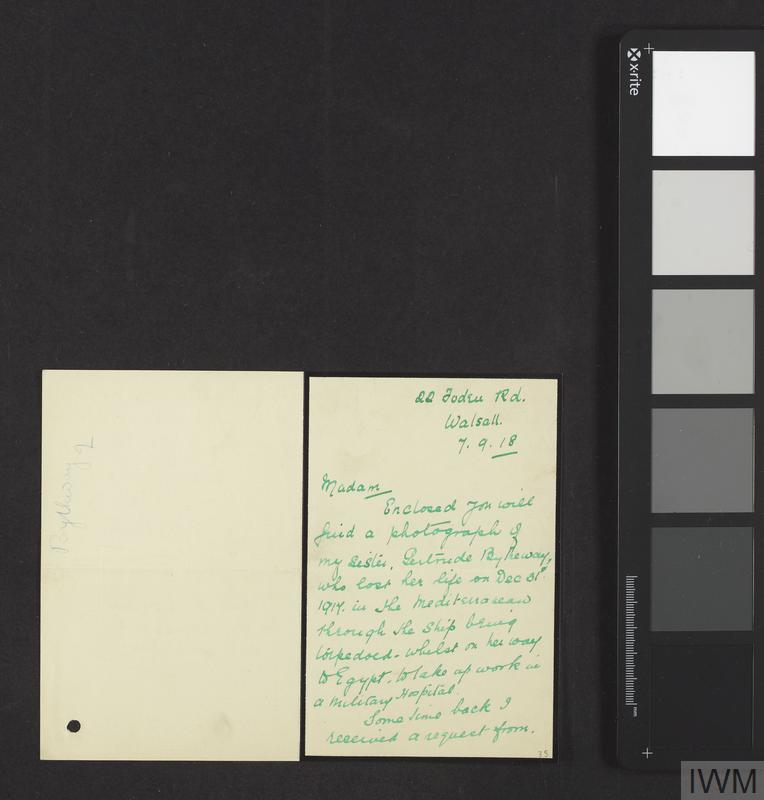 Bytheway 2
22 Foden Rd.
Walsall.
7.9.18
Madam
Enclosed you will
find a photograph of
my sister, Gertrude Bytheway,
who lost her life on Dec 31st
1917. in the Mediterranean
through the ship being
torpedoed - whilst on her way
to Egypt. to take up work in
a Military Hospital.
Some time back I
received a request from.
35
x·rite
mm
IWM